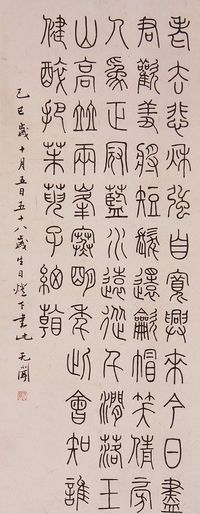 老去悲秋強自寬興來今日盡
君歡羞將短髮還吹帽笑倩旁
人為正冠藍水遠從千澗落玉
山高竝兩峯寒明年此會知誰
健醉把茱萸子細看
己巳歲十月五日五十八歲生日燈下書此 无聞